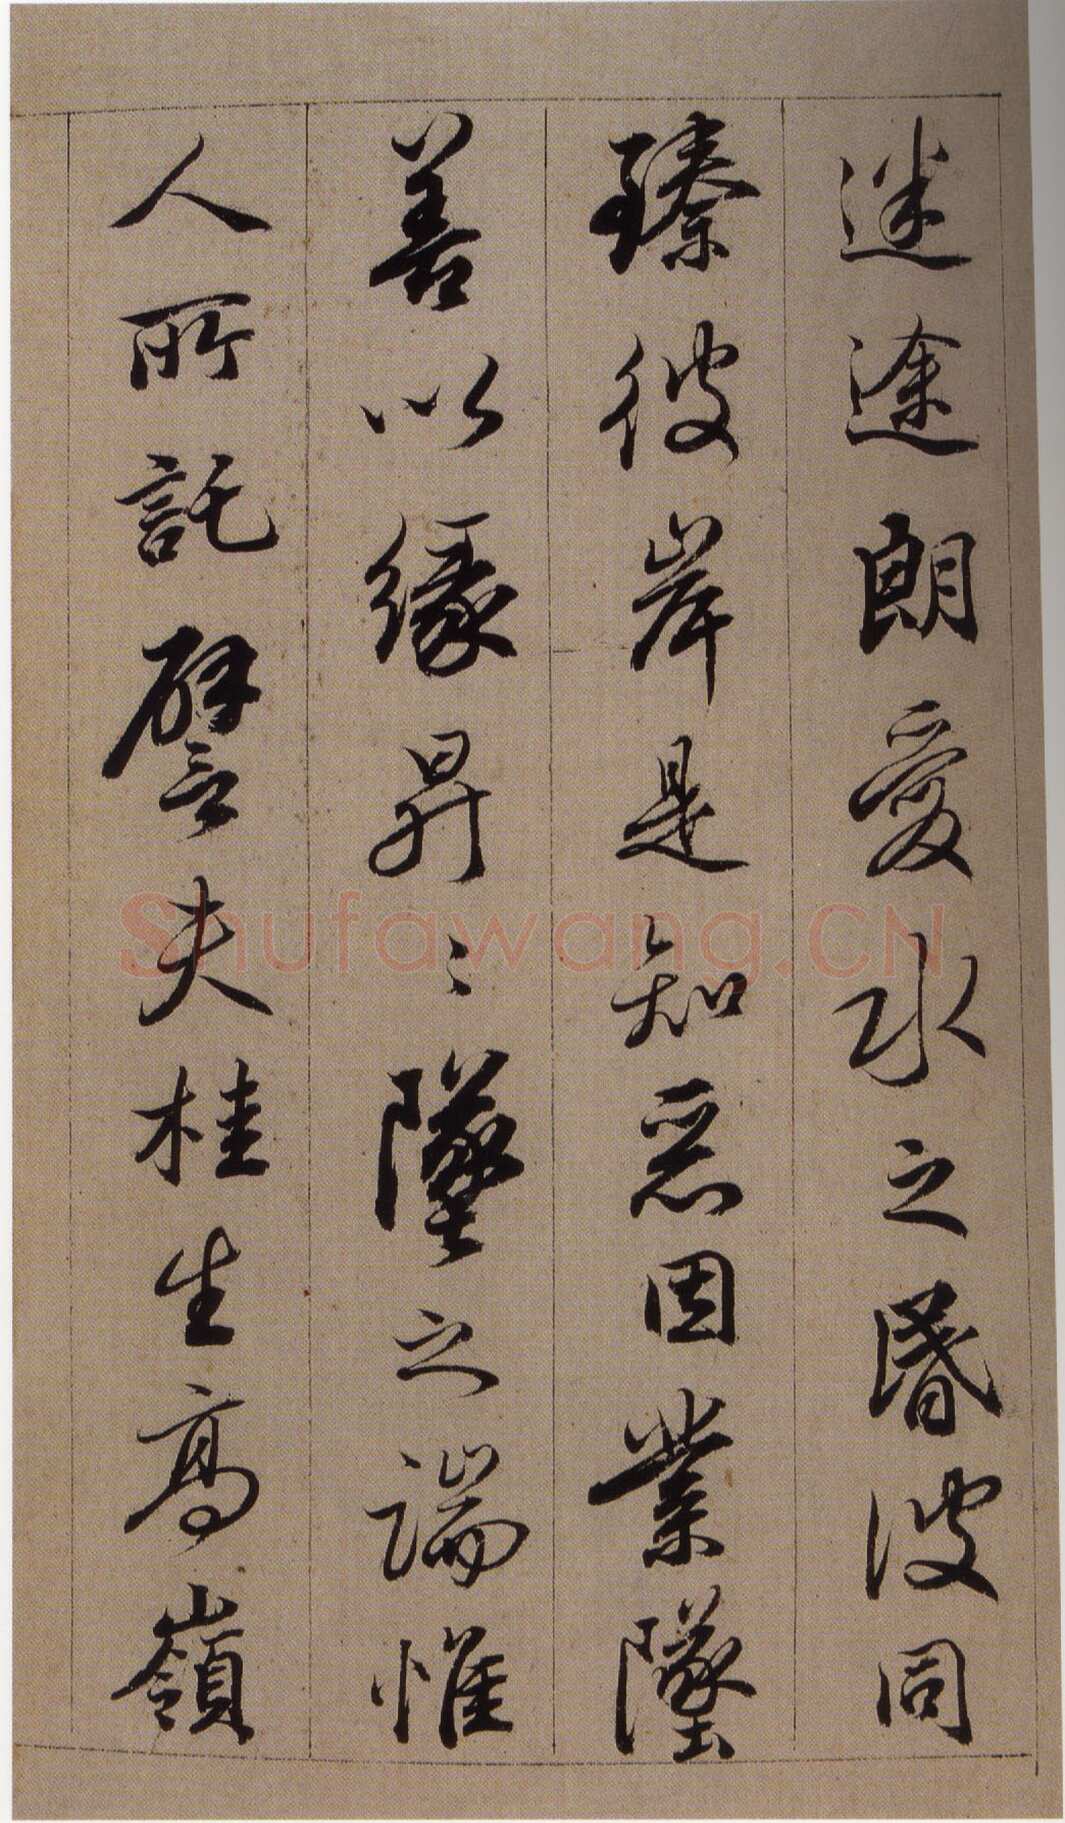 迷途朗愛水之昏波同
臻彼岸是知惡因業墜
善以緣昇〻墜之端惟
人所託譬夫桂生高嶺
Shufawang.CN